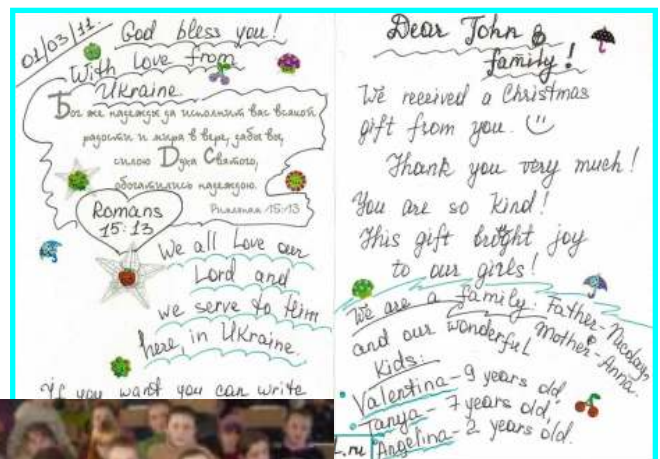 01/03/11.
God bless you!
With Love from
Ukraine.
Бог же надежды да исполнит вас всякой
радости и мира в вере, дабы вы,
силою Духа Святого,
обогатились надеждою.
Римлянам 15:13
Romans
15:13
We all Love our
Lord and
we serve to Him
here, in Ukraine.
If you want you can write
Dear John &
family!
We received a Christmas
gift from you.
Thank you very much!
You are so kind!
This gift joy
to our girls!
We are a family: Father-Nicolay,
Mother-Anna.
and our wonderful
Kids:
Valentina - 9 years old,
Tanya - 7 years old,
Angelina - 2 years old.
L.ru